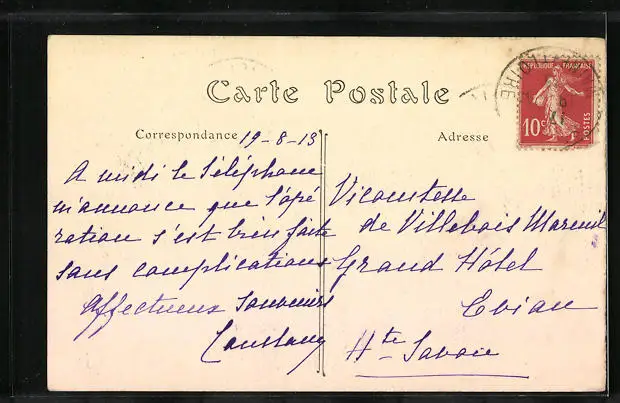 Carte Postale
Correspondance 19-8-13
A midi le Téléphone
m'annonce que l'opé
ration s'est bien faite
sans complications
Affectueux Souvenirs
Adresse
Vicomtesse
de Villebois Mareuil
Grand Hôtel
Evian
Hte Savoie
REPUBLIQUE FRANÇAISE
10c
POSTES